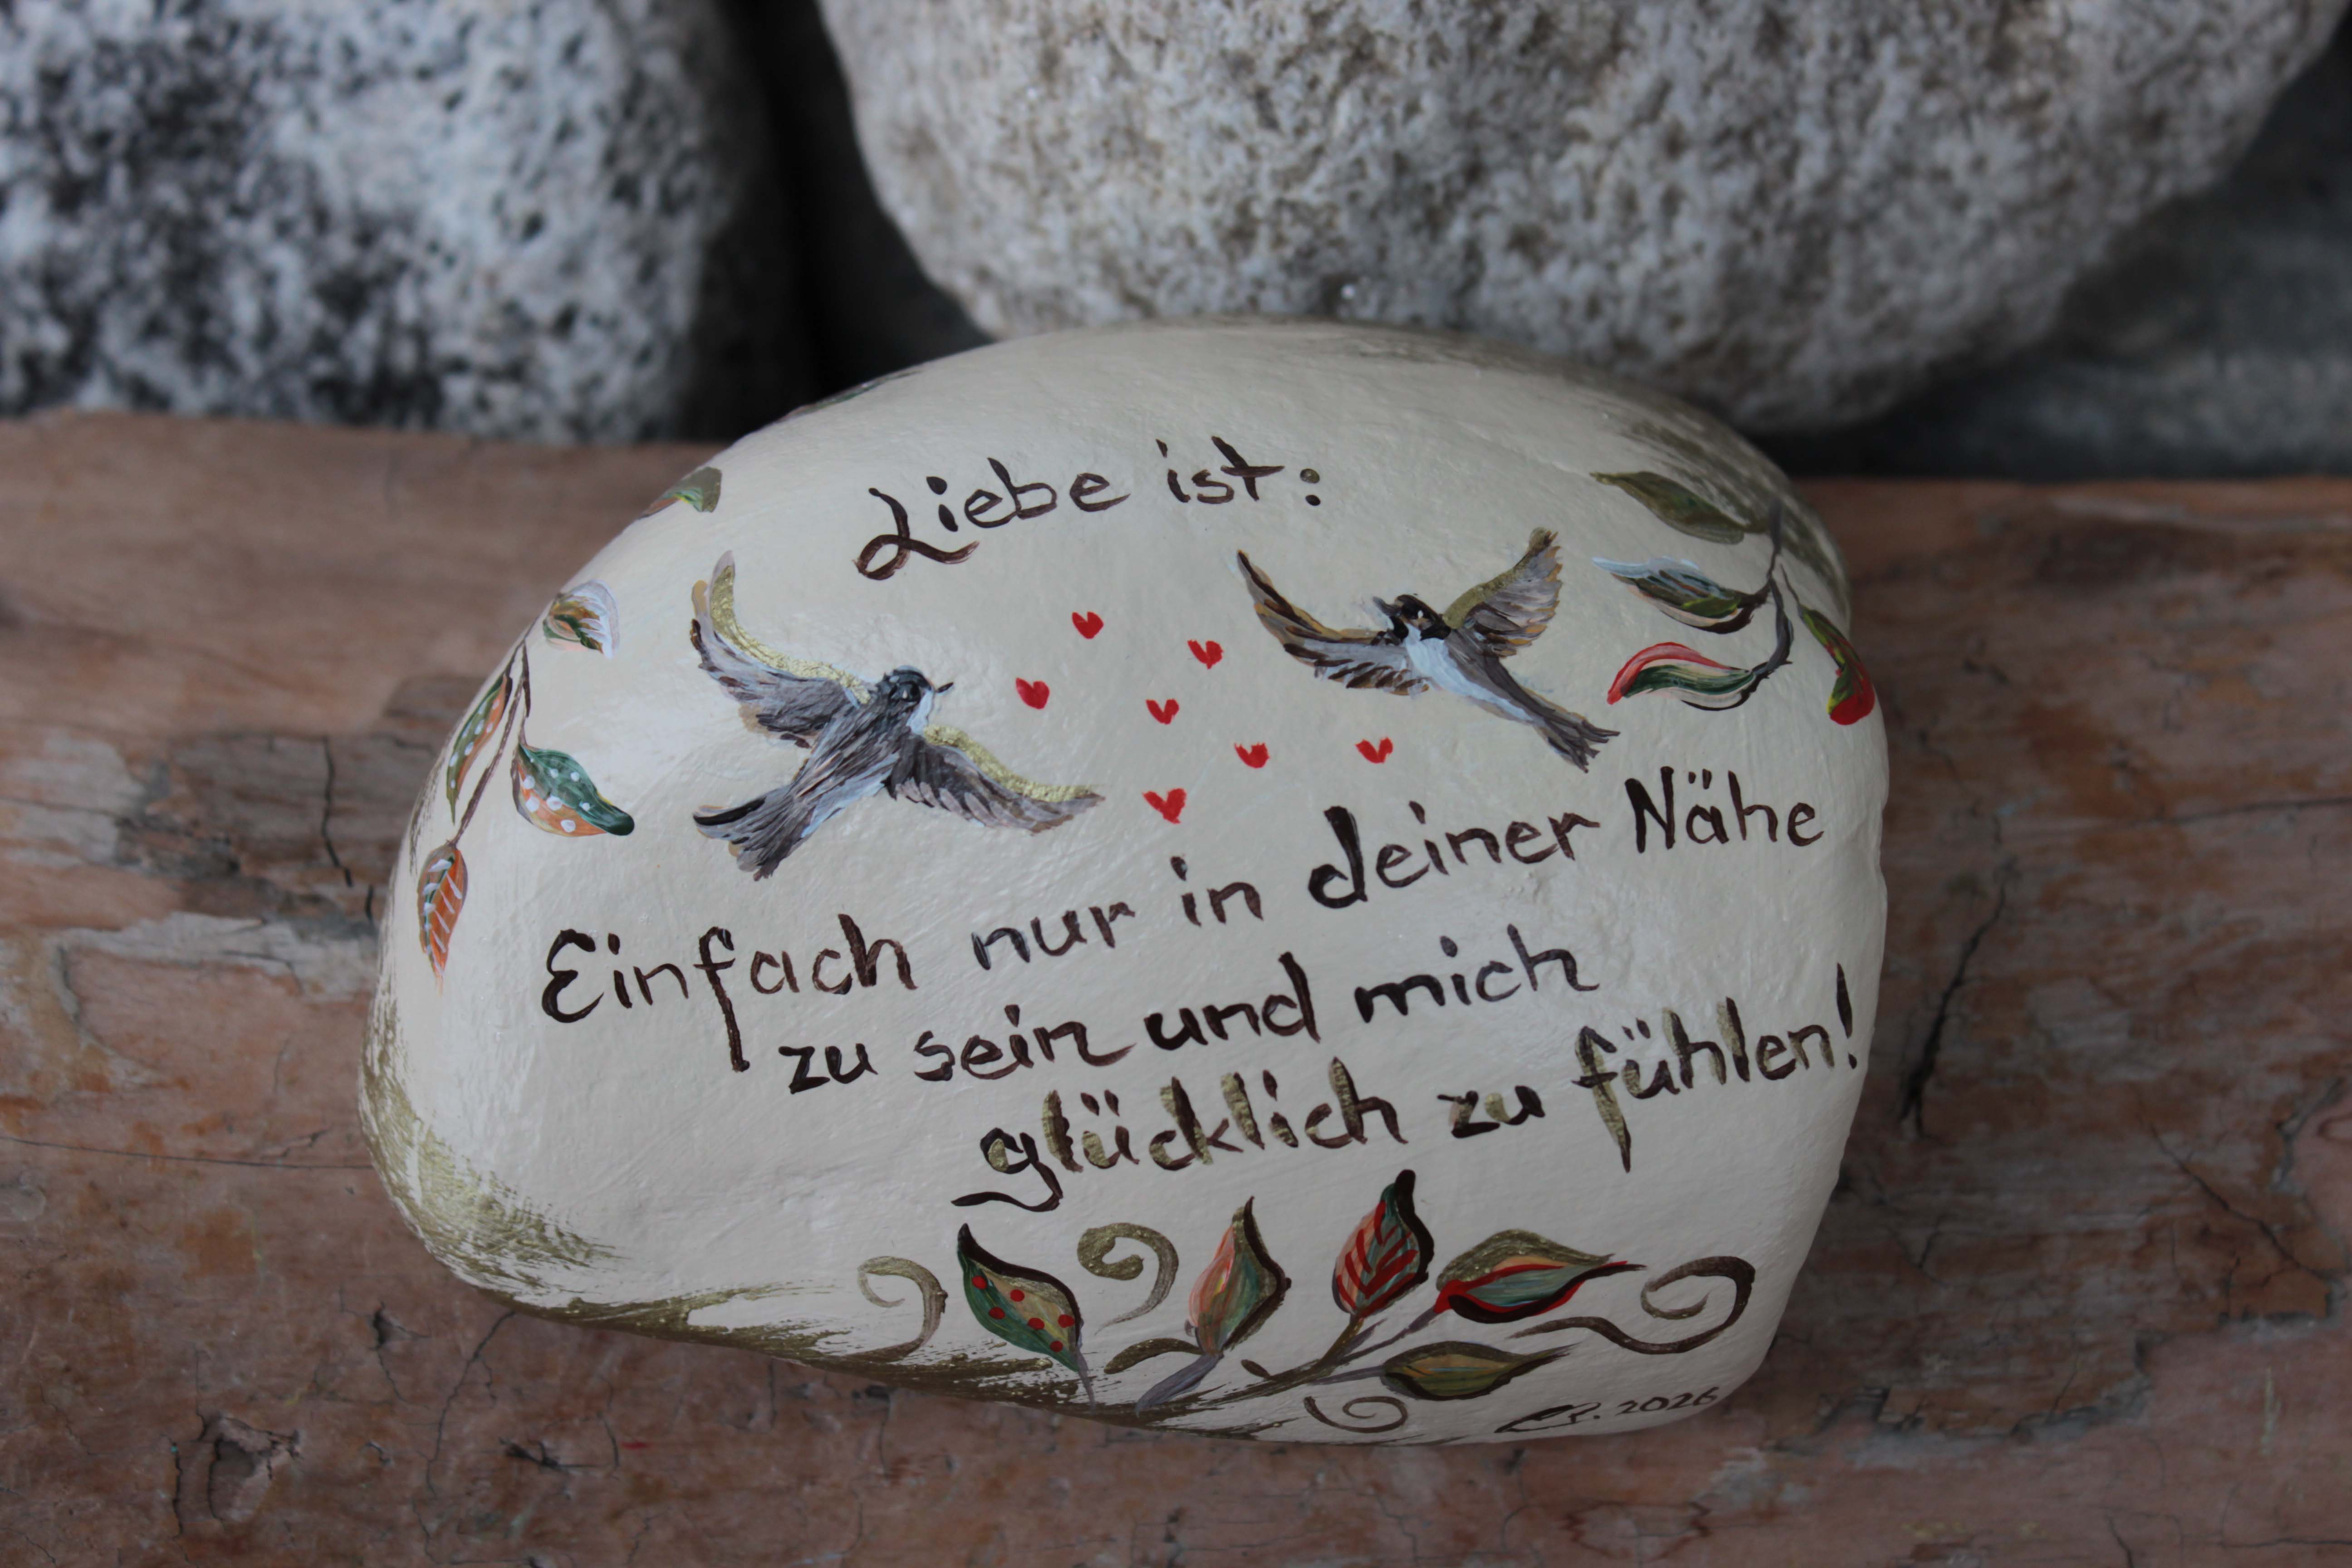 Liebe ist:
Einfach nur in deiner Nähe
zu sein und mich
glücklich zu fühlen!
2026